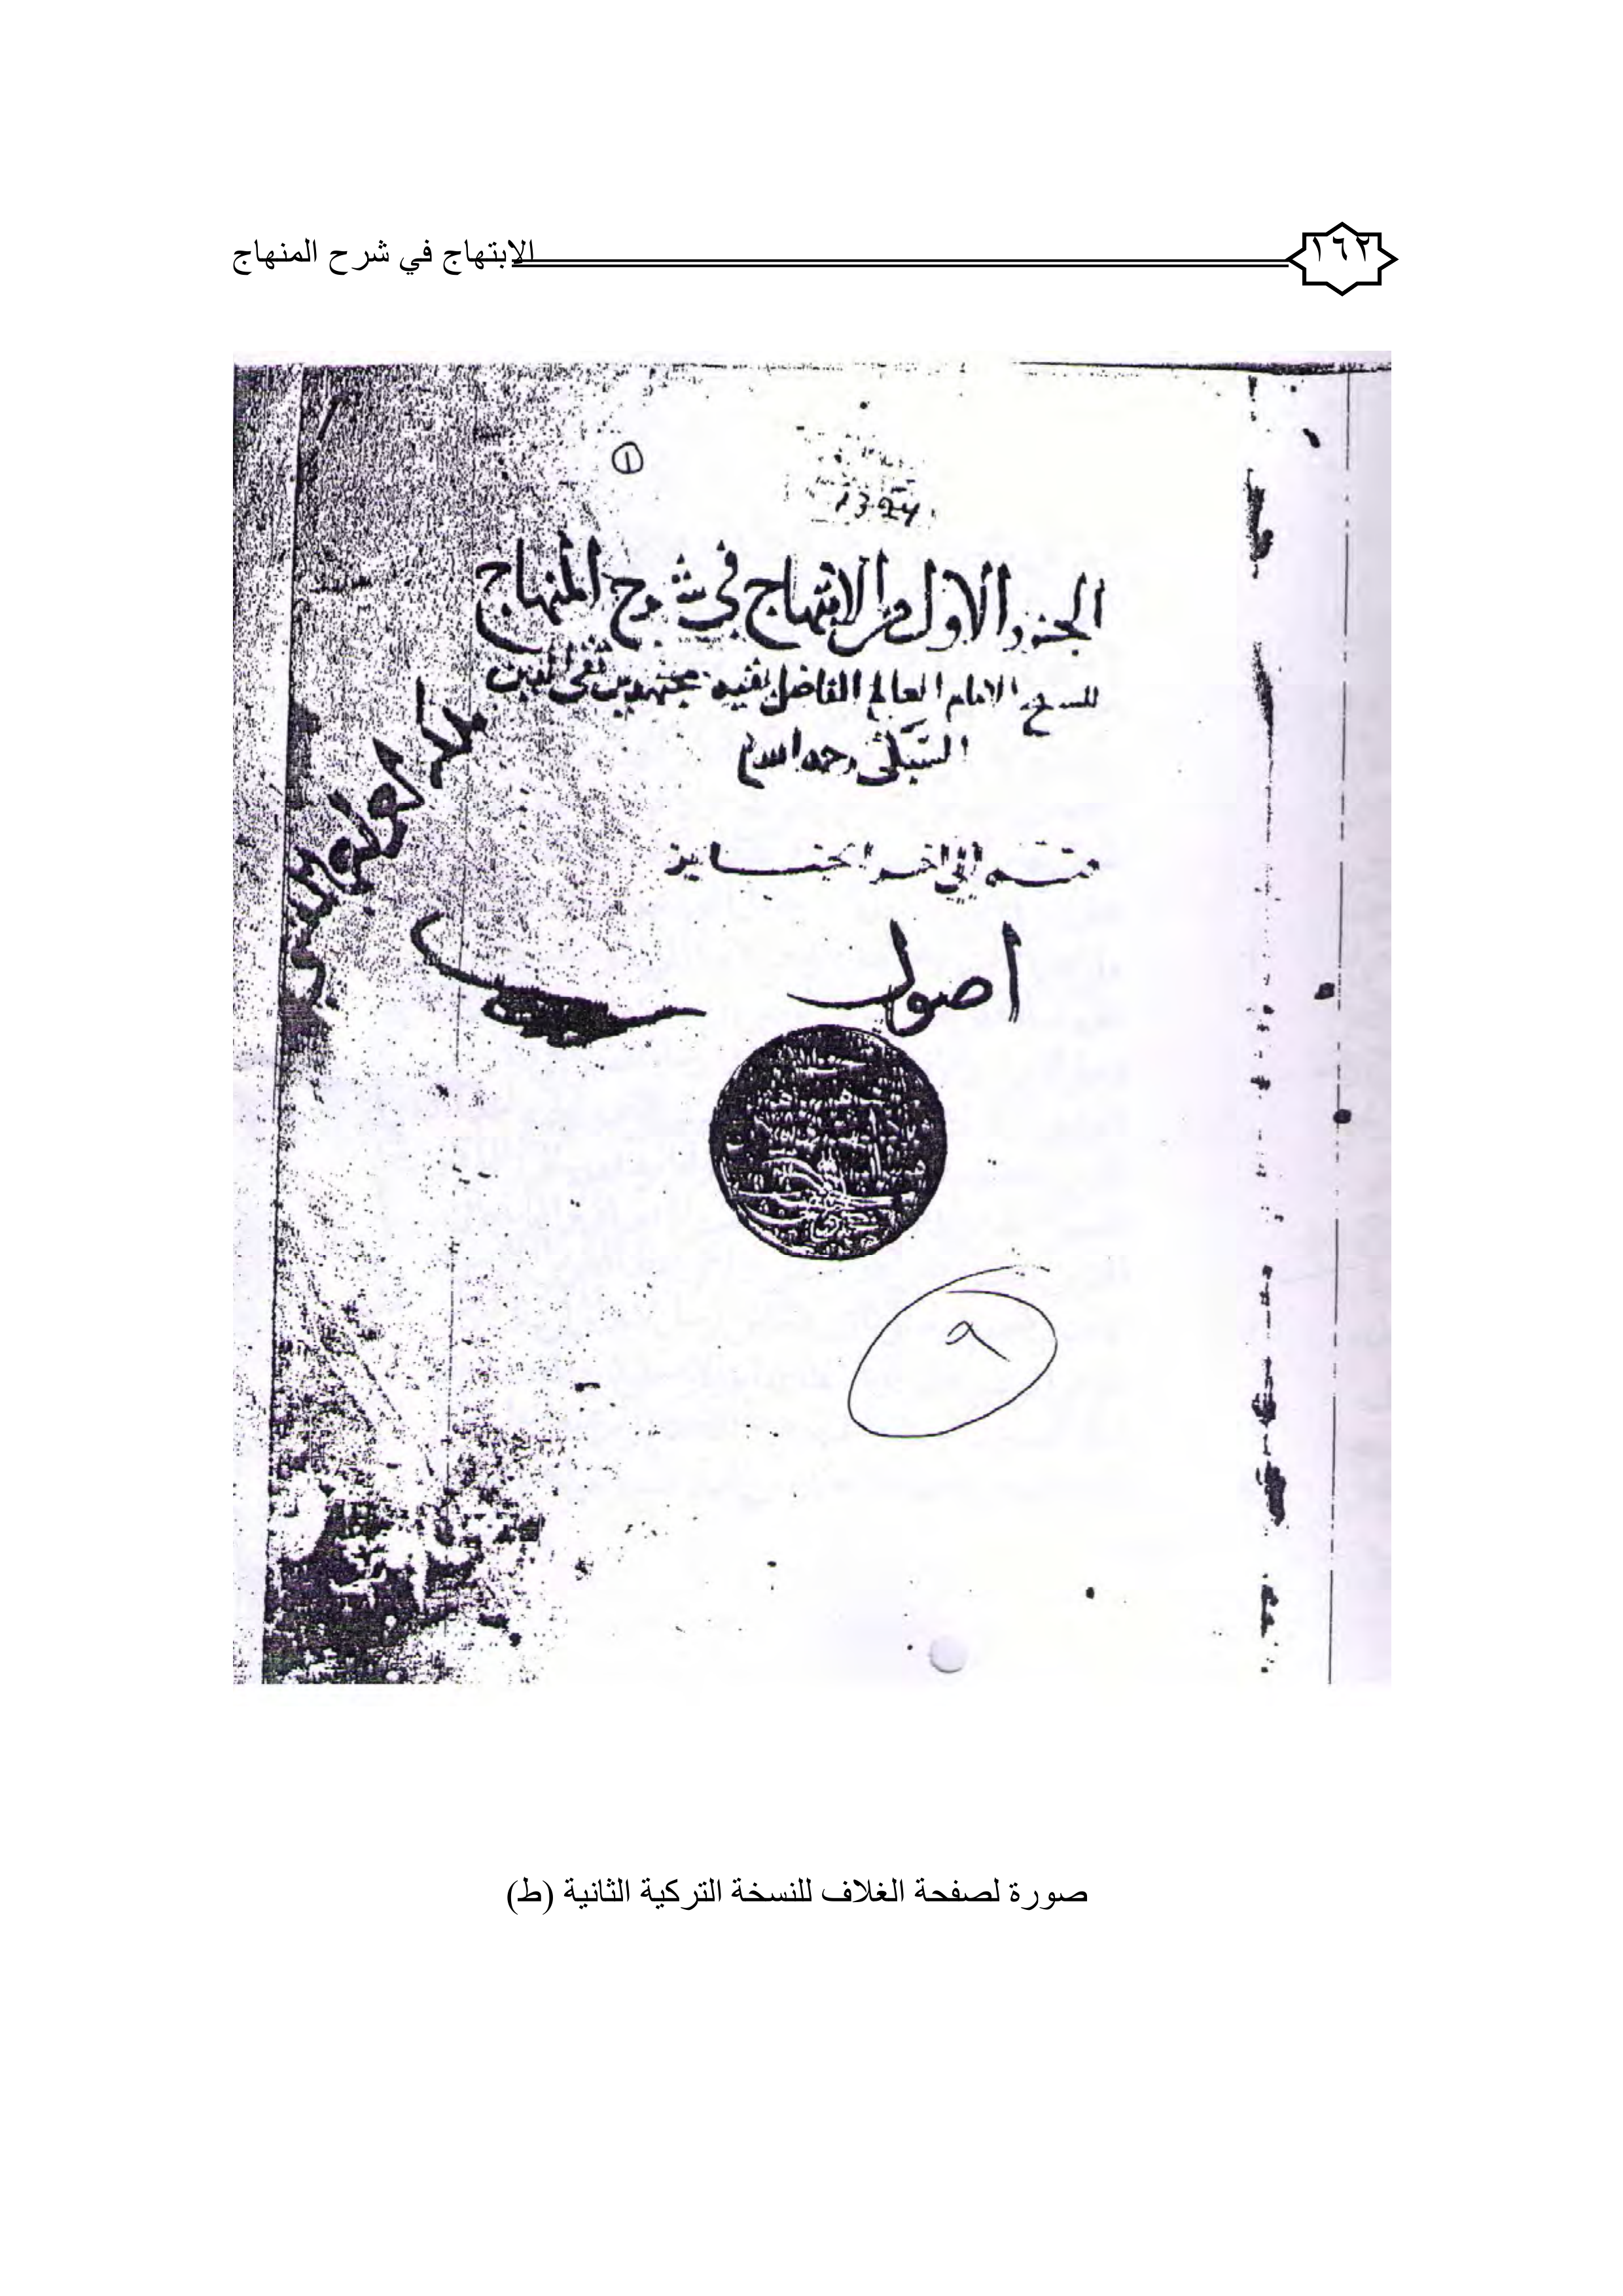 ١٦٢
الابتهاج في شرح المنهاج
١
1324
الجزء الاول من الابتهاج في شرح المنهاج
للشيخ الامام العالم الفاضل بقية مجتهدين تقي الدين
السبكي رحمه الله
الى اخر الجنايز
اصول
٩
صورة لصفحة الغلاف للنسخة التركية الثانية (ط)